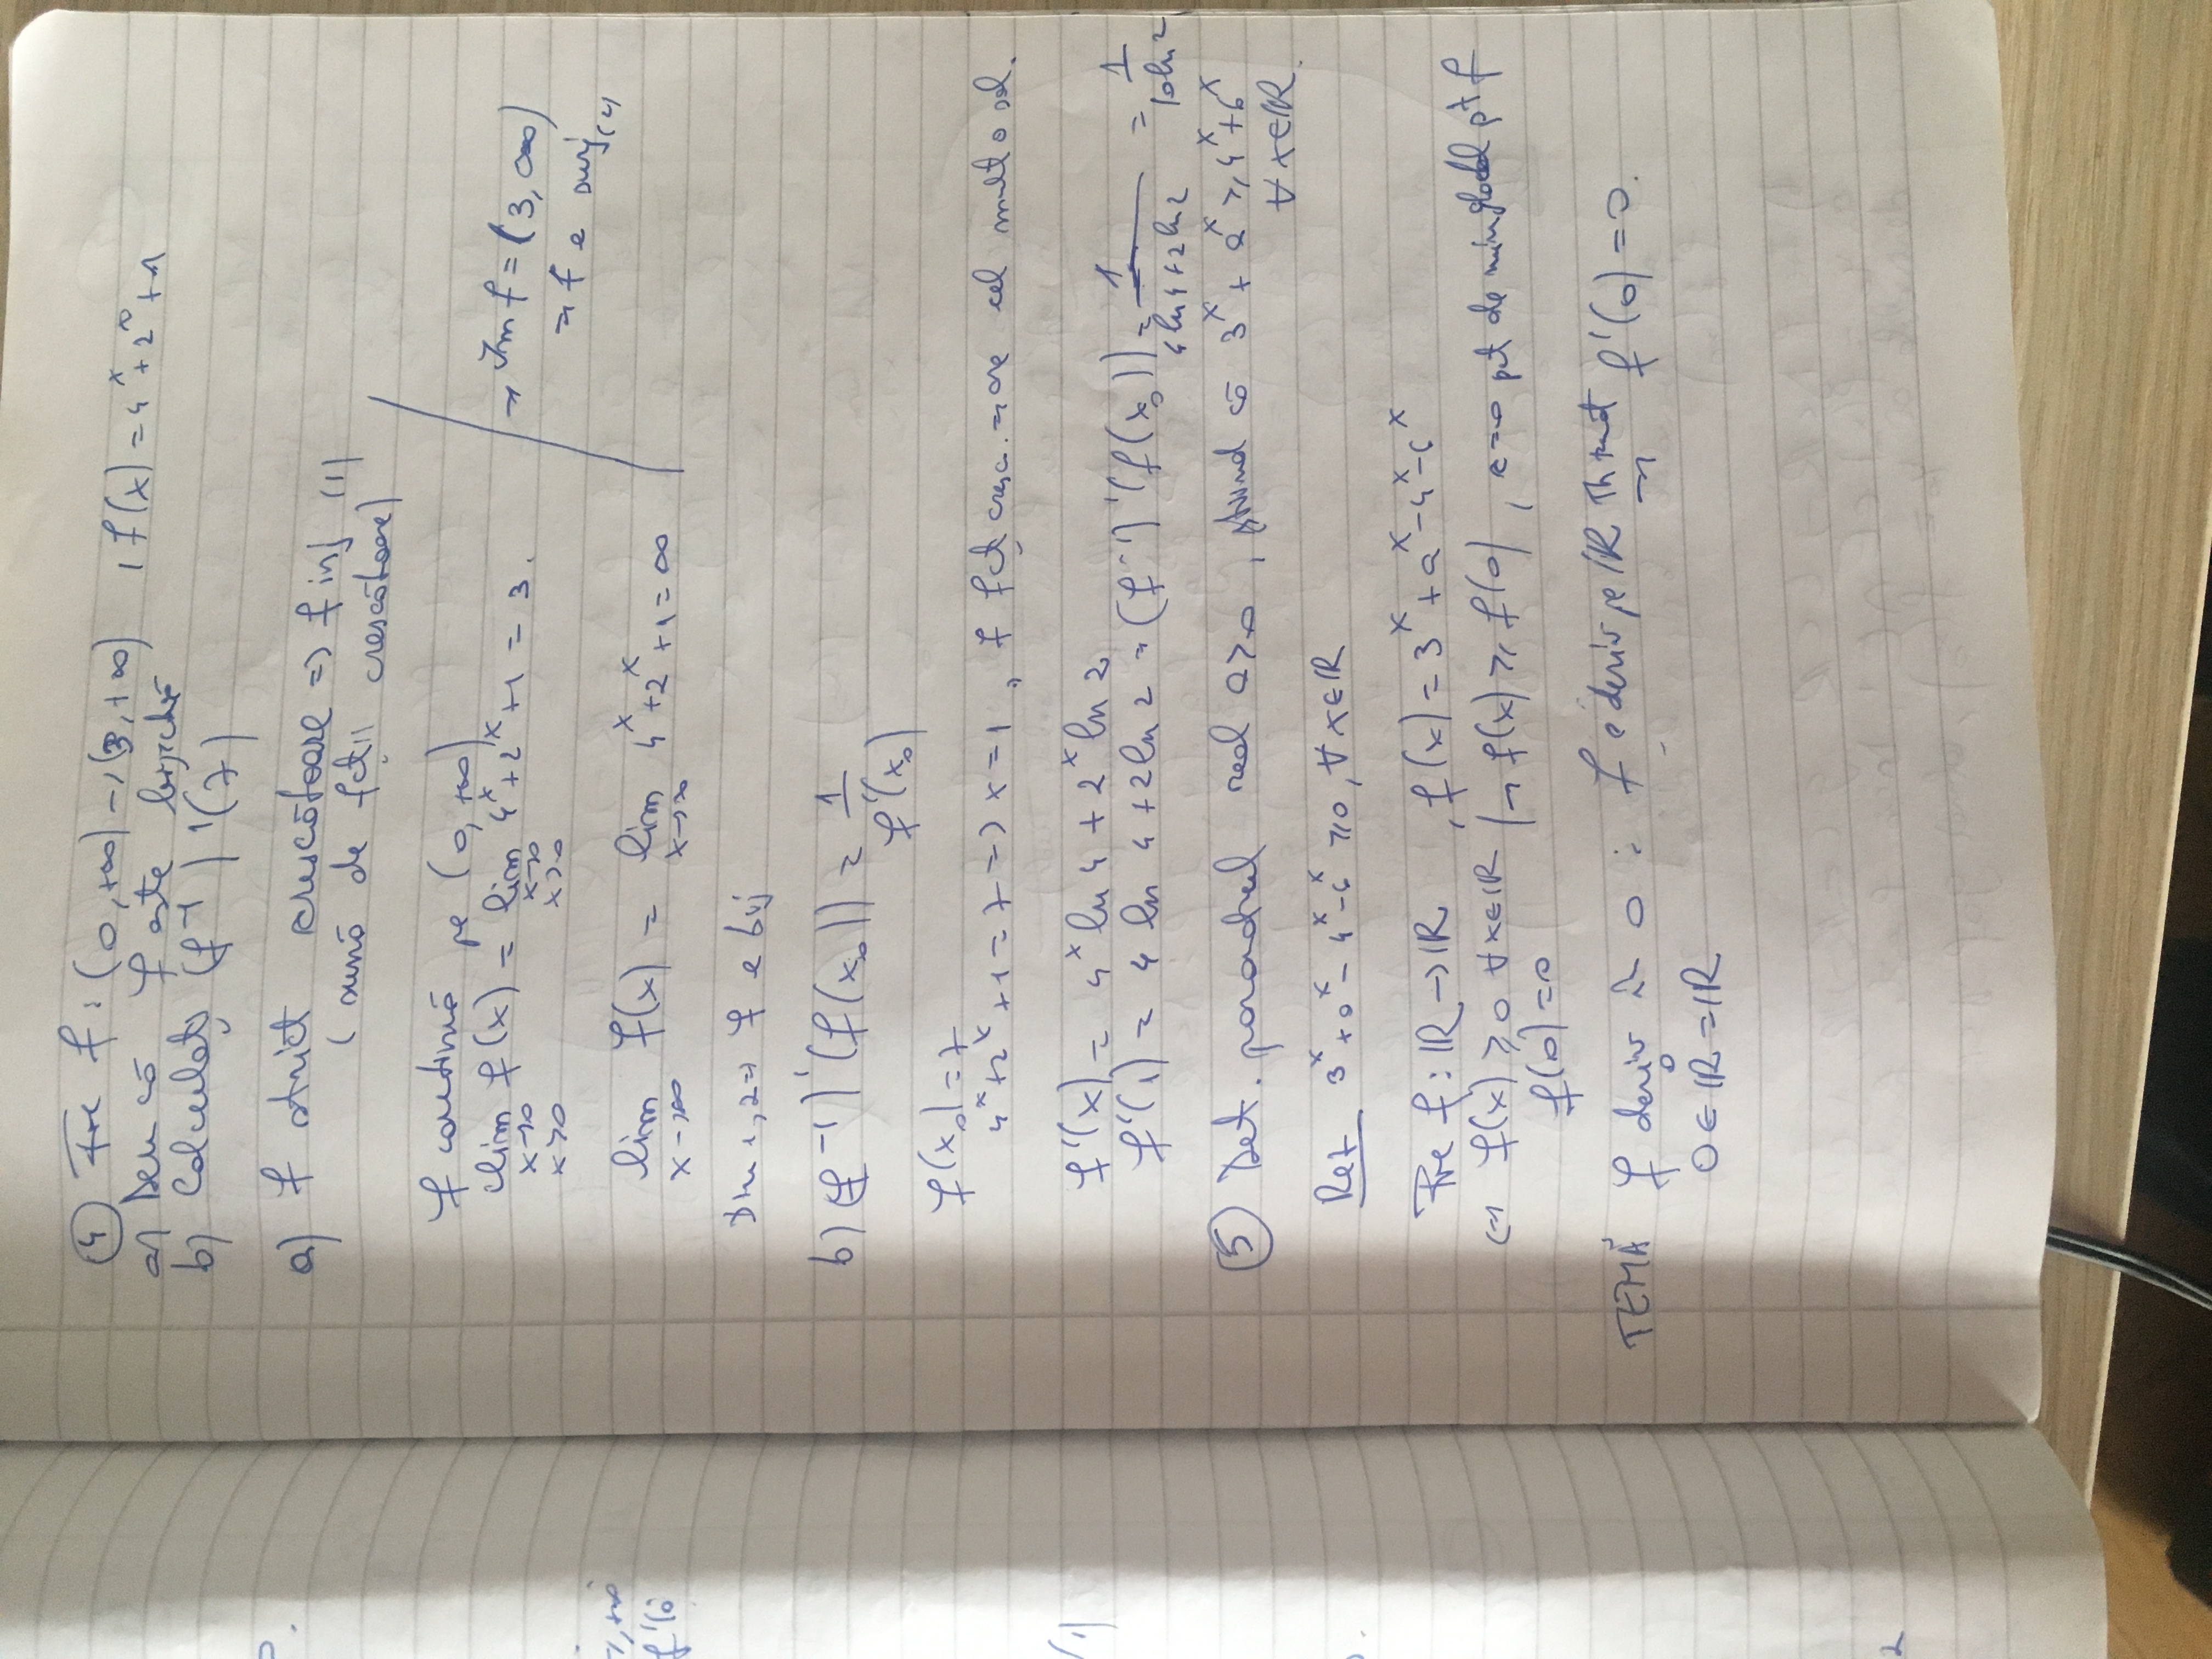 ④ Fie f : (0, +∞) → (3, +∞) , f(x) = 4^x + 2^x + 1
a) Dem că f este bijectivă
b) Calculați (f^-1)'(7)
a) f strict crescătoare => f inj (1)
(sumă de fcții crescătoare)
f continuă pe (0, +∞)
lim f(x) = lim 4^x + 2^x + 1 = 3.
x→0 x→0
x>0 x>0
→ Im f = (3, ∞)
⇒ f e surj (2)
lim f(x) = lim 4^x + 2^x + 1 = ∞
x→∞ x→∞
Din 1, 2 => f e bij
b) (f^-1)'(f(x_0)) = 1/f'(x_0)
f(x_0) = 7
4^x + 2^x + 1 = 7 => x = 1 , f fcț cresc. ⇒ are cel mult o sol.
f'(x) = 4^x ln 4 + 2^x ln 2
f'(1) = 4 ln 4 + 2 ln 2 ⇒ (f^-1)'(f(x_0)) = 1/(4 ln 4 + 2 ln 2) = 1/(10 ln 2)
⑤ Det. real a > 0 , știind că 3^x + a^x ≥ 4^x + 6^x
∀ x ∈ ℝ.
Rez 3^x + a^x - 4^x - 6^x ≥ 0, ∀ x ∈ ℝ
Fie f : ℝ → ℝ , f(x) = 3^x + a^x - 4^x - 6^x
⇔ f(x) ≥ 0 ∀ x ∈ ℝ | → f(x) ≥ f(0) , x = 0 pct de min global pt f
f(0) = 0
TEMĂ f deriv în 0 : f e deriv pe ℝ Th Fermat ⇒ f'(0) = 0.
0 ∈ ℝ° = ℝ